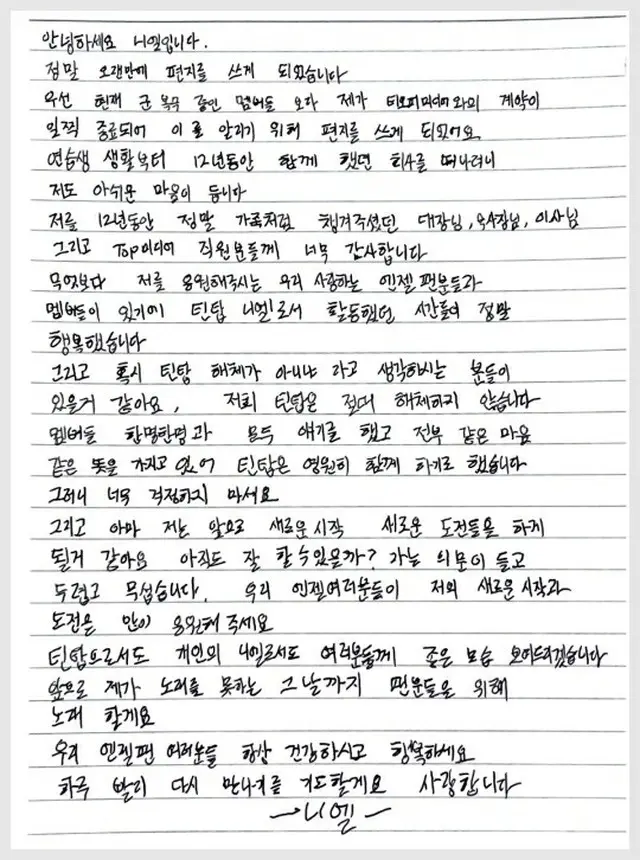 안녕하세요 니엘입니다.
정말 오랜만에 편지를 쓰게 되었습니다
우선 현재 군 복무 중인 멤버들 보다 제가 티오피미디어와의 계약이
일찍 종료되어 이를 알리기 위해 편지를 쓰게 되었어요
연습생 생활부터 12년동안 함께 했던 회사를 떠나려니
저도 아쉬운 마음이 듭니다
저를 12년동안 정말 가족처럼 챙겨주셨던 대장님, 우사장님, 이사님
그리고 Top미디어 직원분들께 너무 감사합니다
무엇보다 저를 응원해주시는 우리 사랑하는 엔젤 팬분들과
멤버들이 있기에 틴탑 니엘로서 활동했던 시간들이 정말
행복했습니다
그리고 혹시 틴탑 해체가 아니냐 라고 생각하시는 분들이
있을거 같아요, 저희 틴탑은 절대 해체하지 않습니다
멤버들 한명한명과 모두 얘기를 했고 전부 같은 마음
같은 뜻을 가지고 있어 틴탑은 영원히 함께 하기로 했습니다
그러니 너무 걱정하지 마세요
그리고 아마 저는 앞으로 새로운 시작 새로운 도전들을 하게
될거 같아요 아직도 잘 할수있을까? 라는 의문이 들고
두렵고 무섭습니다. 우리 엔젤여러분들이 저의 새로운 시작과
도전을 많이 응원해 주세요
틴탑으로서도 개인의 니엘로서도 여러분들께 좋은 모습 보여드리겠습니다
앞으로 제가 노래를 못하는 그날까지 팬분들을 위해
노래 할게요
우리 엔젤팬 여러분들 항상 건강하시고 행복하세요
하루 빨리 다시 만나기를 기도할게요 사랑합니다
–니엘–